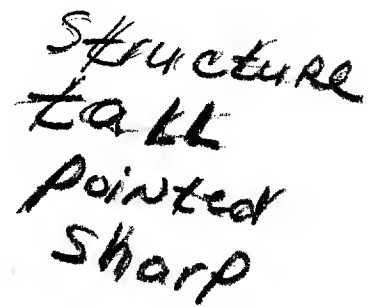 Structure
tall
pointed
sharp